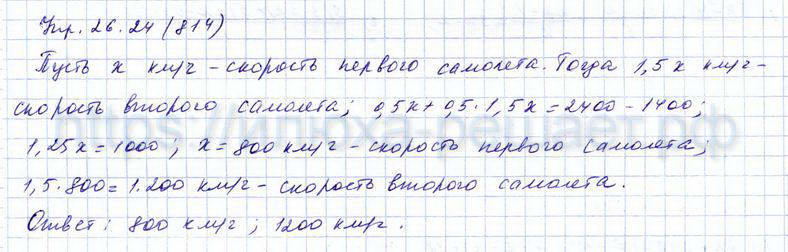 Упр. 26.24 (814)
Пусть х км/ч – скорость первого самолета. Тогда 1,5х км/ч –
скорость второго самолета; 0,5х + 0,5·1,5х = 2400 – 1400;
1,25х = 1000; х = 800 км/ч – скорость первого самолета;
1,5·800 = 1.200 км/ч – скорость второго самолета.
Ответ: 800 км/ч; 1200 км/ч.